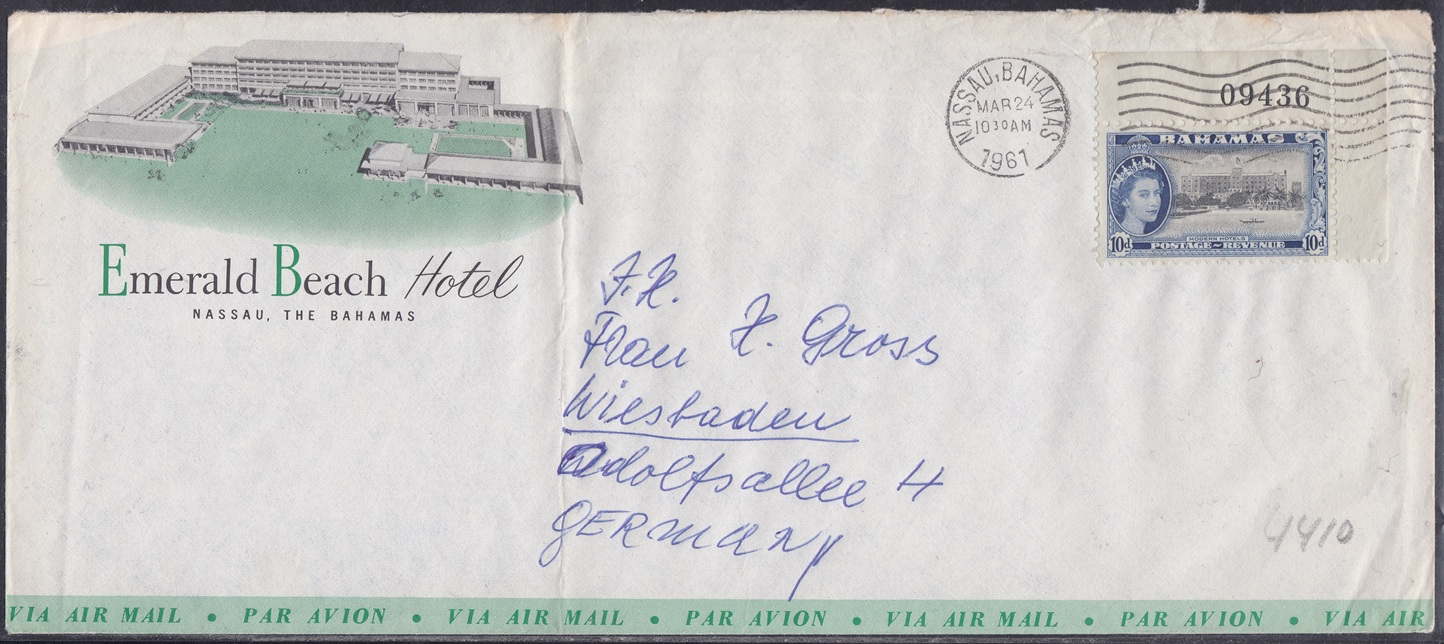 Emerald Beach Hotel
NASSAU, THE BAHAMAS
NASSAU, BAHAMAS
MAR 24
10 30 AM
1961
09436
BAHAMAS
MODERN HOTELS
10d POSTAGE REVENUE 10d
F.H.
Frau H. Gross
Wiesbaden
Adolfsallee 4
GERMANY
4410
VIA AIR MAIL • PAR AVION • VIA AIR MAIL • PAR AVION • VIA AIR MAIL • PAR AVION • VIA AIR